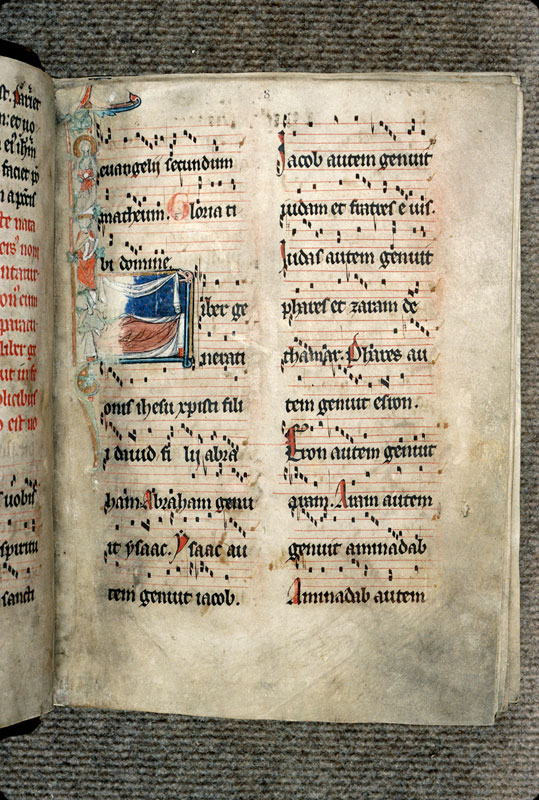 n: et uo
te nata
liber ge
o est uo
uobis
spiritu
sancti
euangelij secundum
matheum. Gloria ti
bi domine
Liber ge
nerati
onis ihesu xpisti fili
i dauid fi lij abra
ham. Abraham genu
it ysaac. Ysaac au
tem genuit iacob.
Iacob autem genuit
iudam et fratres e ius.
Iudas autem genuit
phares et zaram de
thamar. Phares au
tem genuit esron.
Esron autem genuit
aram. Aram autem
genuit aminadab
Aminadab autem